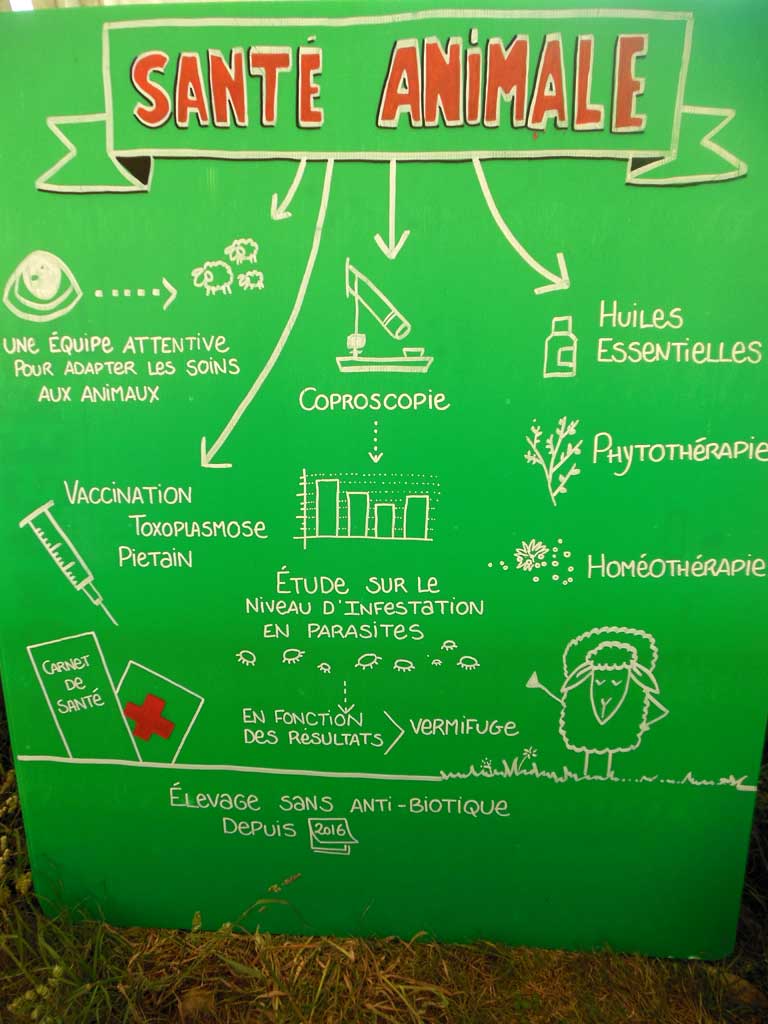 SANTÉ ANIMALE
UNE ÉQUIPE ATTENTIVE
POUR ADAPTER LES SOINS
AUX ANIMAUX
VACCINATION
TOXOPLASMOSE
PIETAIN
CARNET
DE
SANTÉ
COPROSCOPIE
ÉTUDE SUR LE
NIVEAU D'INFESTATION
EN PARASITES
EN FONCTION
DES RÉSULTATS
VERMIFUGE
HUILES
ESSENTIELLES
PHYTOTHÉRAPIE
HOMÉOTHÉRAPIE
ÉLEVAGE SANS ANTI-BIOTIQUE
DEPUIS 2016